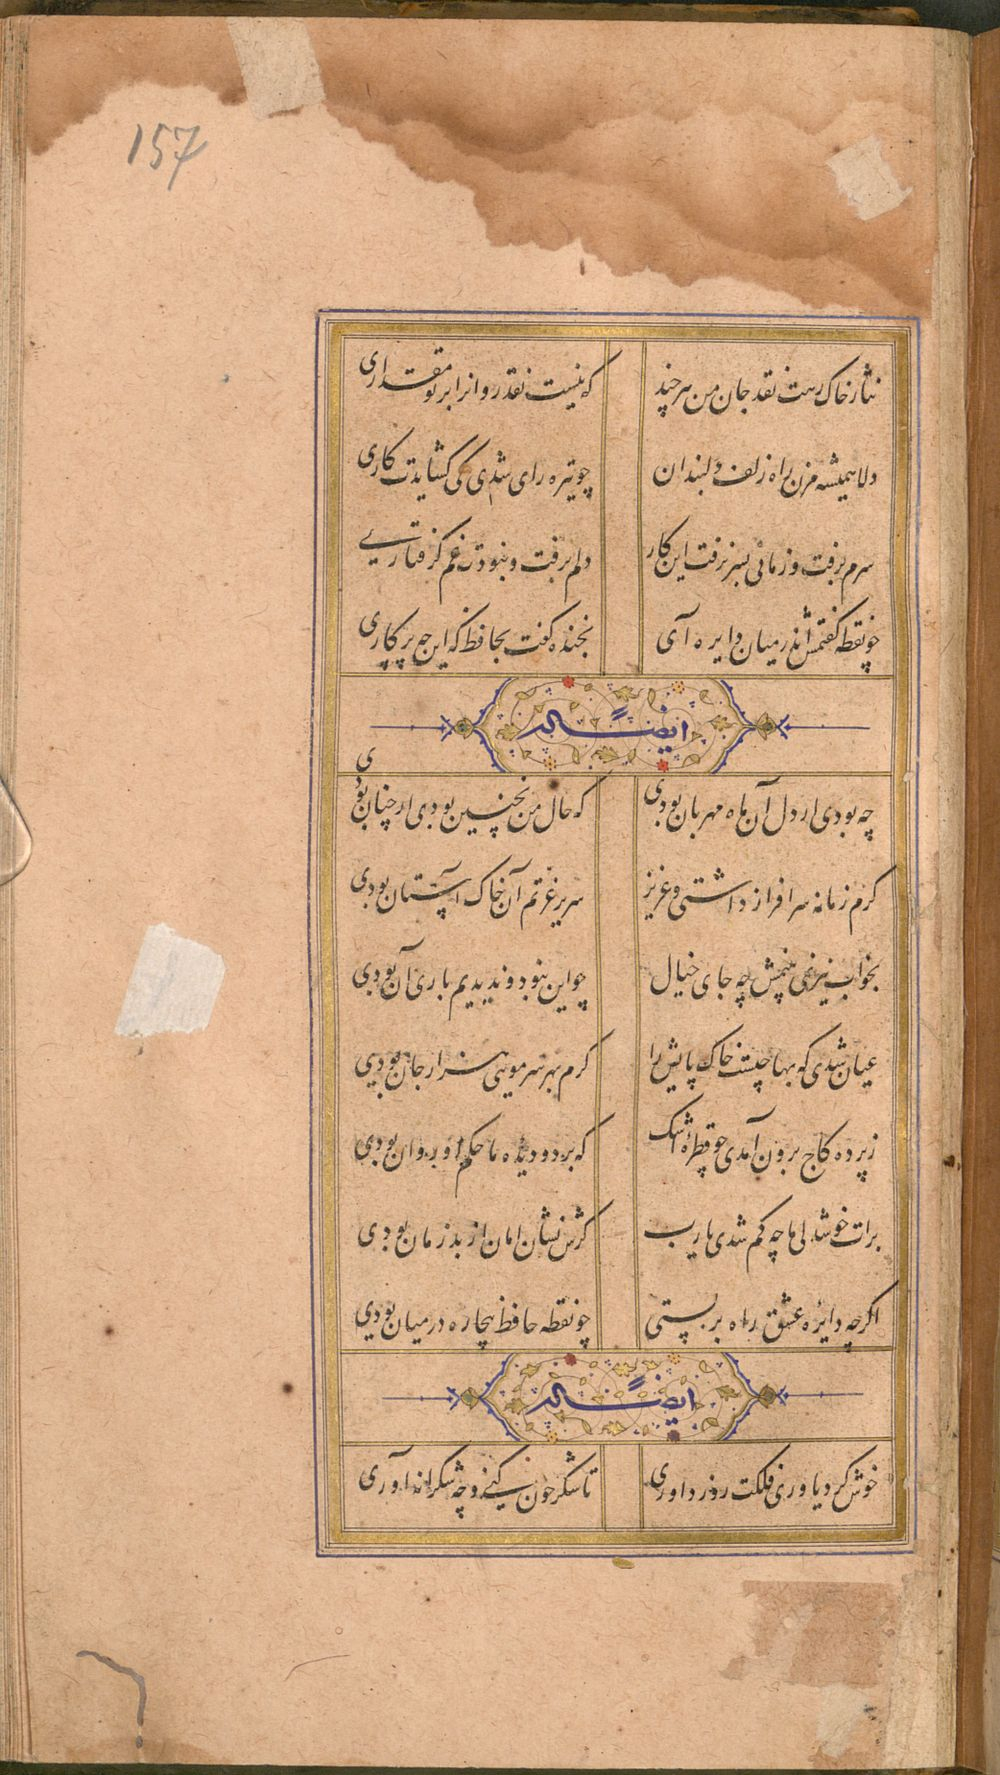 157
نثار خاک رهت نقد جان من هر چند
که نیست نقد روانرا بر تو مقداری
دلا همیشه مزن راه زلف دلبندان
چو تیره رای شدی کی گشایدت کاری
سرم برفت و زمانی بسر نرفت این کار
دلم برفت و نبودت غم گرفتاری
چو نقطه گفتمش اندر میان دایره آی
بخنده گفت بحافظ که این چه پرگاری
ایضاً له
چه بودی ار دل آن ماه مهربان بودی
که حال من نچنین بودی ار چنان بودی
گرم زمانه سرافراز داشتی و عزیز
سریر عزتم آن خاک آستان بودی
بخواب نیز نمی بینمش چه جای خیال
چو این نبود و ندیدیم باری آن بودی
عیان شدی که بها چیست خاک پایش را
گرم بهر سر مویی هزار جان بودی
ز پرده کاج برون آمدی چو قطرهٔ اشک
که بر دو دیده ما حکم او روان بودی
برات خوشدلی ما چه کم شدی یارب
گرش نشان امان از بد زمان بودی
اگر چه دایره عشق راه بر بستی
چو نقطه حافظ بیچاره در میان بودی
ایضاً له
خوش کرد یاوری فلکت روز داوری
تا شکر چون کنی و چه شکرانه آوری